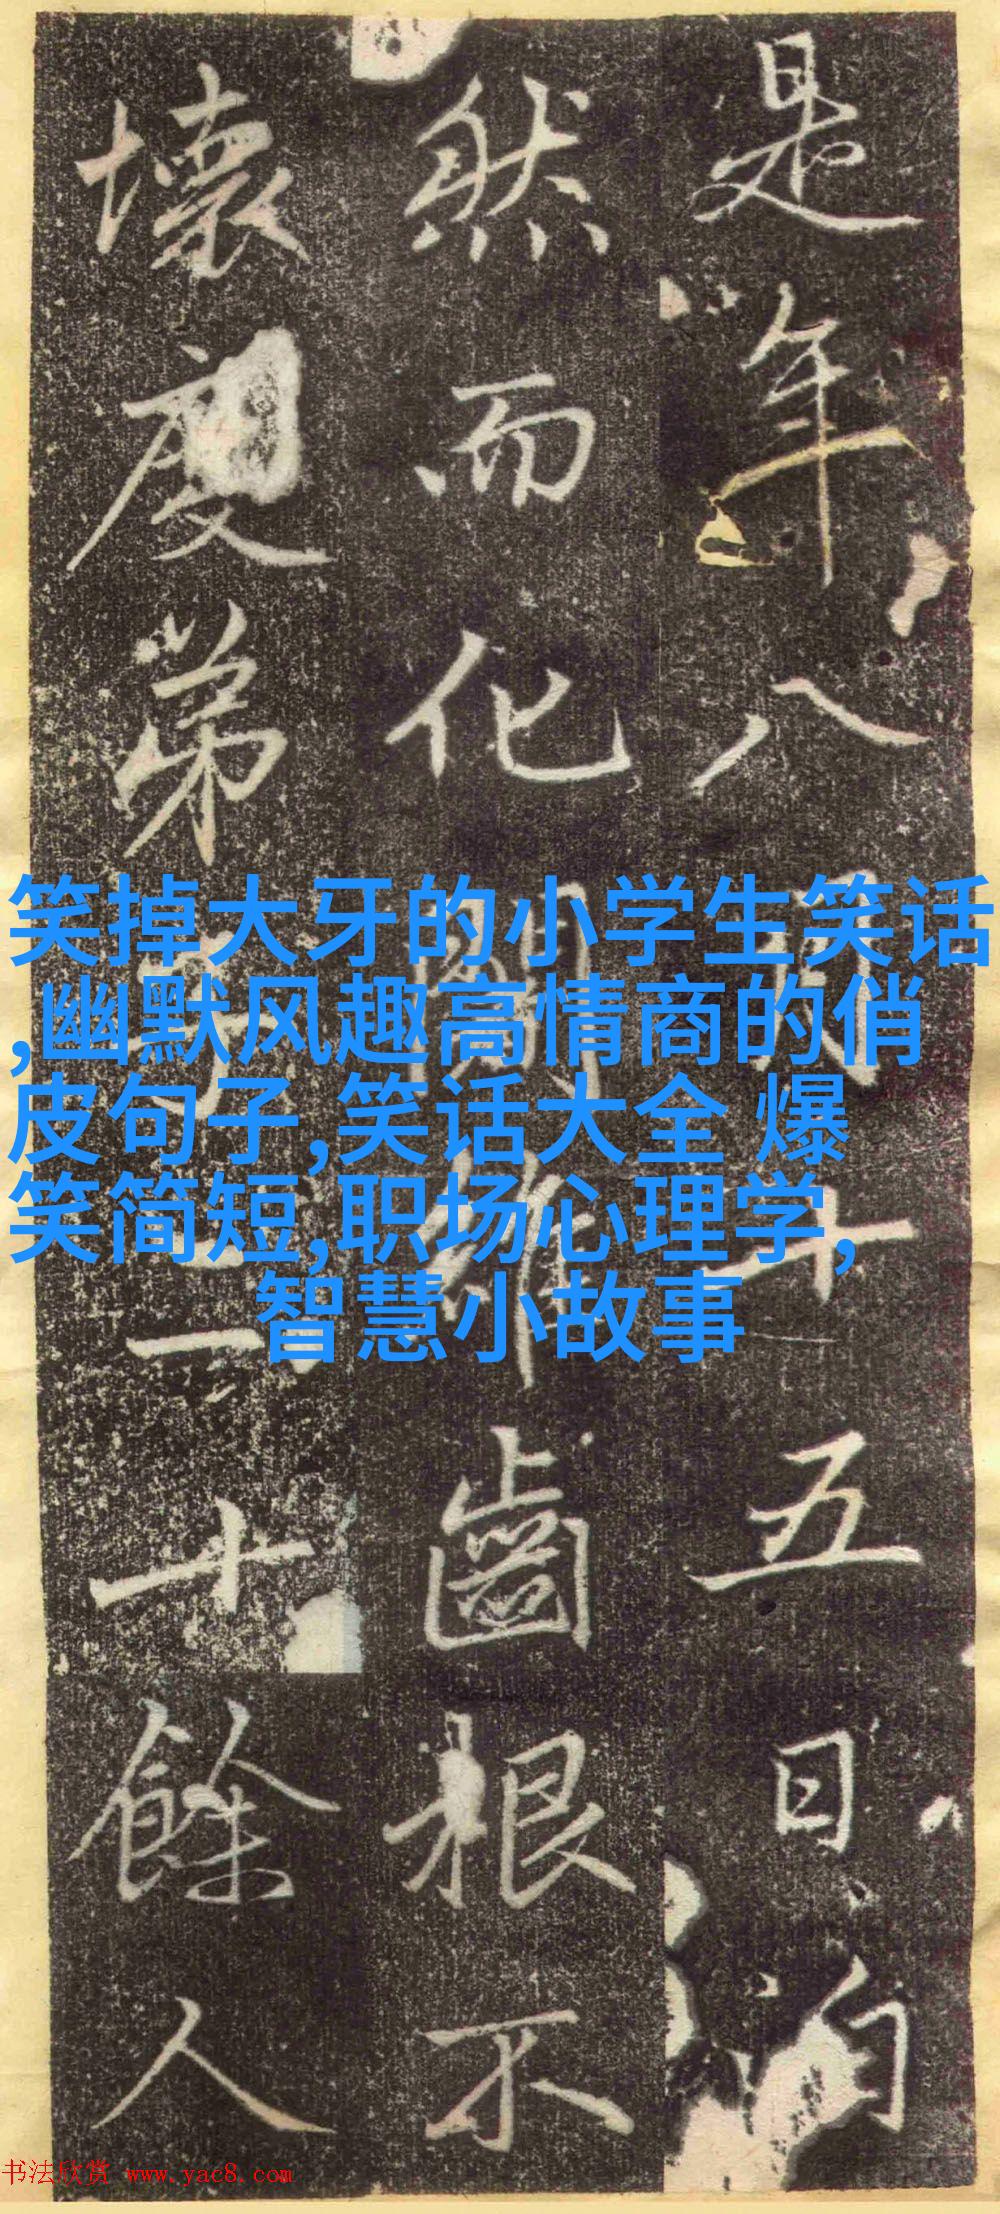 是年八月十五日自
然而化關節齒根不
壞度弟子二十餘人
笑掉大牙的小学生笑话
,幽默风趣高情商的俏
皮句子,笑话大全 爆
笑简短,职场心理学,
智慧小故事
书法欣赏 www.yac8.com